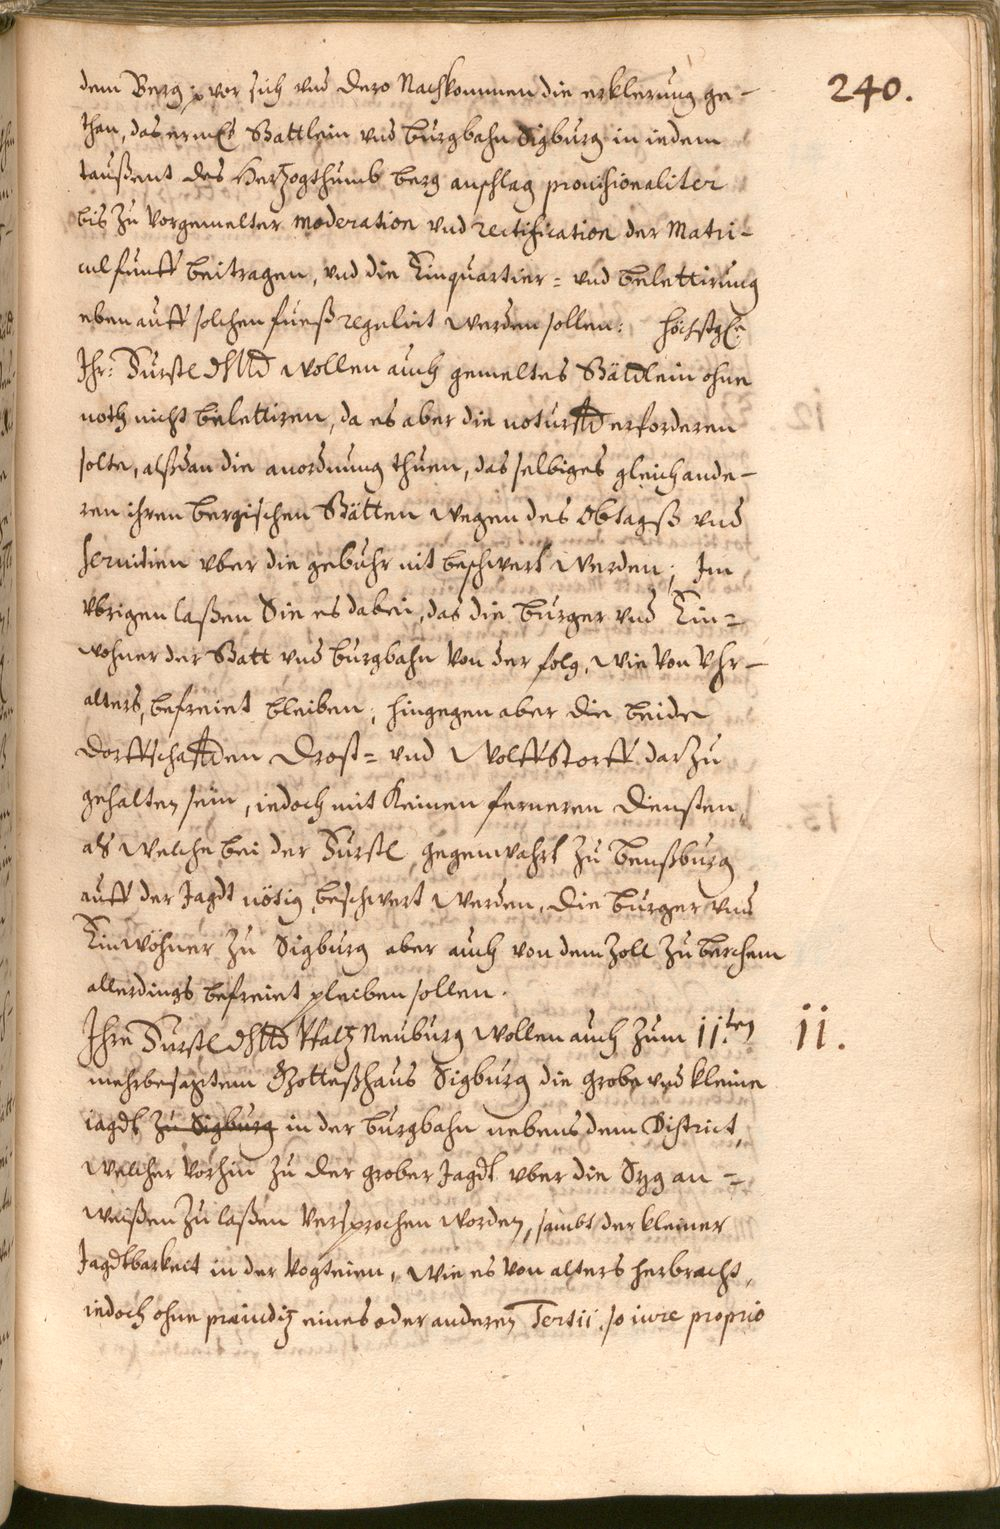 240.
dem Berg: vor sich vnd dero Nachkommen die erklerung ge-
than, das ermelt Stättlein vnd Burgbahn Sigburg in iedem
taußent des Hertzogthumb Berg anschlag provisionaliter
bis zu vorgemelter moderation vnd rectification der Matri-
cul fünff beitragen, vnd die Einquartier= vnd belettirung
eben auff solchen fueß regulirt werden sollen: höchstgl:
Ihr: Fürstl dhltt wollen auch gemeltes Stättlein ohne
noth nicht belettiren, da es aber die noturfft erforderen
solte, alßdan die anordnung thuen, das selbiges gleich ande-
ren ihren bergischen Stätten wegen des Obdagß vnd
servitien vber die gebühr nit beschwert werden; Im
vbrigen laßen Sie es dabei, das die bürger vnd Ein=
wohner der Statt vnd burgbahn von der folg, wie von Vhr-
alters, befreiet bleiben; hingegen aber die beide
Dorffschafften Drost= vnd Wolffstorff darzu
gehalten sein, iedoch mit keinen ferneren diensten,
als welche bei der Fürstl gegenwahrt zu Benßburg
auff der Jagdt nötig, beschwert werden, die bürger vnd
Einwöhner zu Sigburg aber auch von dem Zoll zu berchem
allerdings befreiet pleiben sollen.
Ihre Fürstl dhltt Pfaltz Neuburg wollen auch zum 11.ten
11.
mehrbesagtem Gotteßhaus Sigburg die grobe vnd kleine
iagdt zu Sigburg in der burgbahn nebens dem District,
welcher vorhin zu der grober Jagdt vber die Syg an=
weißen zu laßen versprochen worden, sambt der kleiner
Jagdtbarkeit in der Vogteien, wie es von alters herbracht,
iedoch ohne praeiuditz eines oder anderen Tertii, so iure proprio